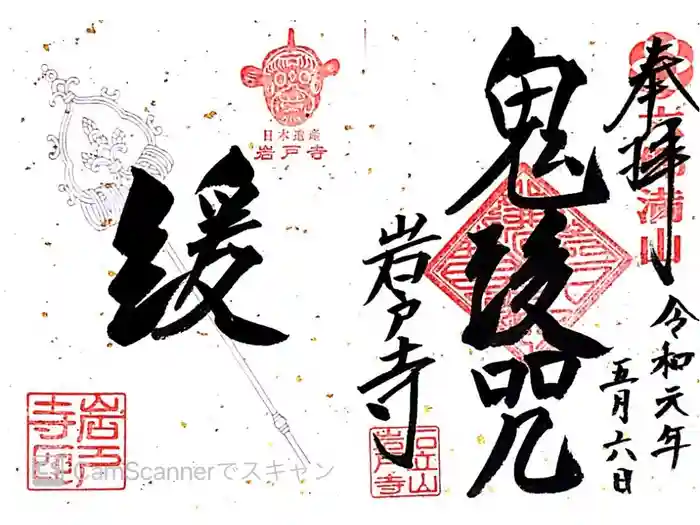 奉拝
六郷満山
令和元年
五月六日
鬼後咒
岩戸寺
石立山
岩戸寺
日本遺産
岩戸寺
緩
岩戸
寺印
CamScannerでスキャン